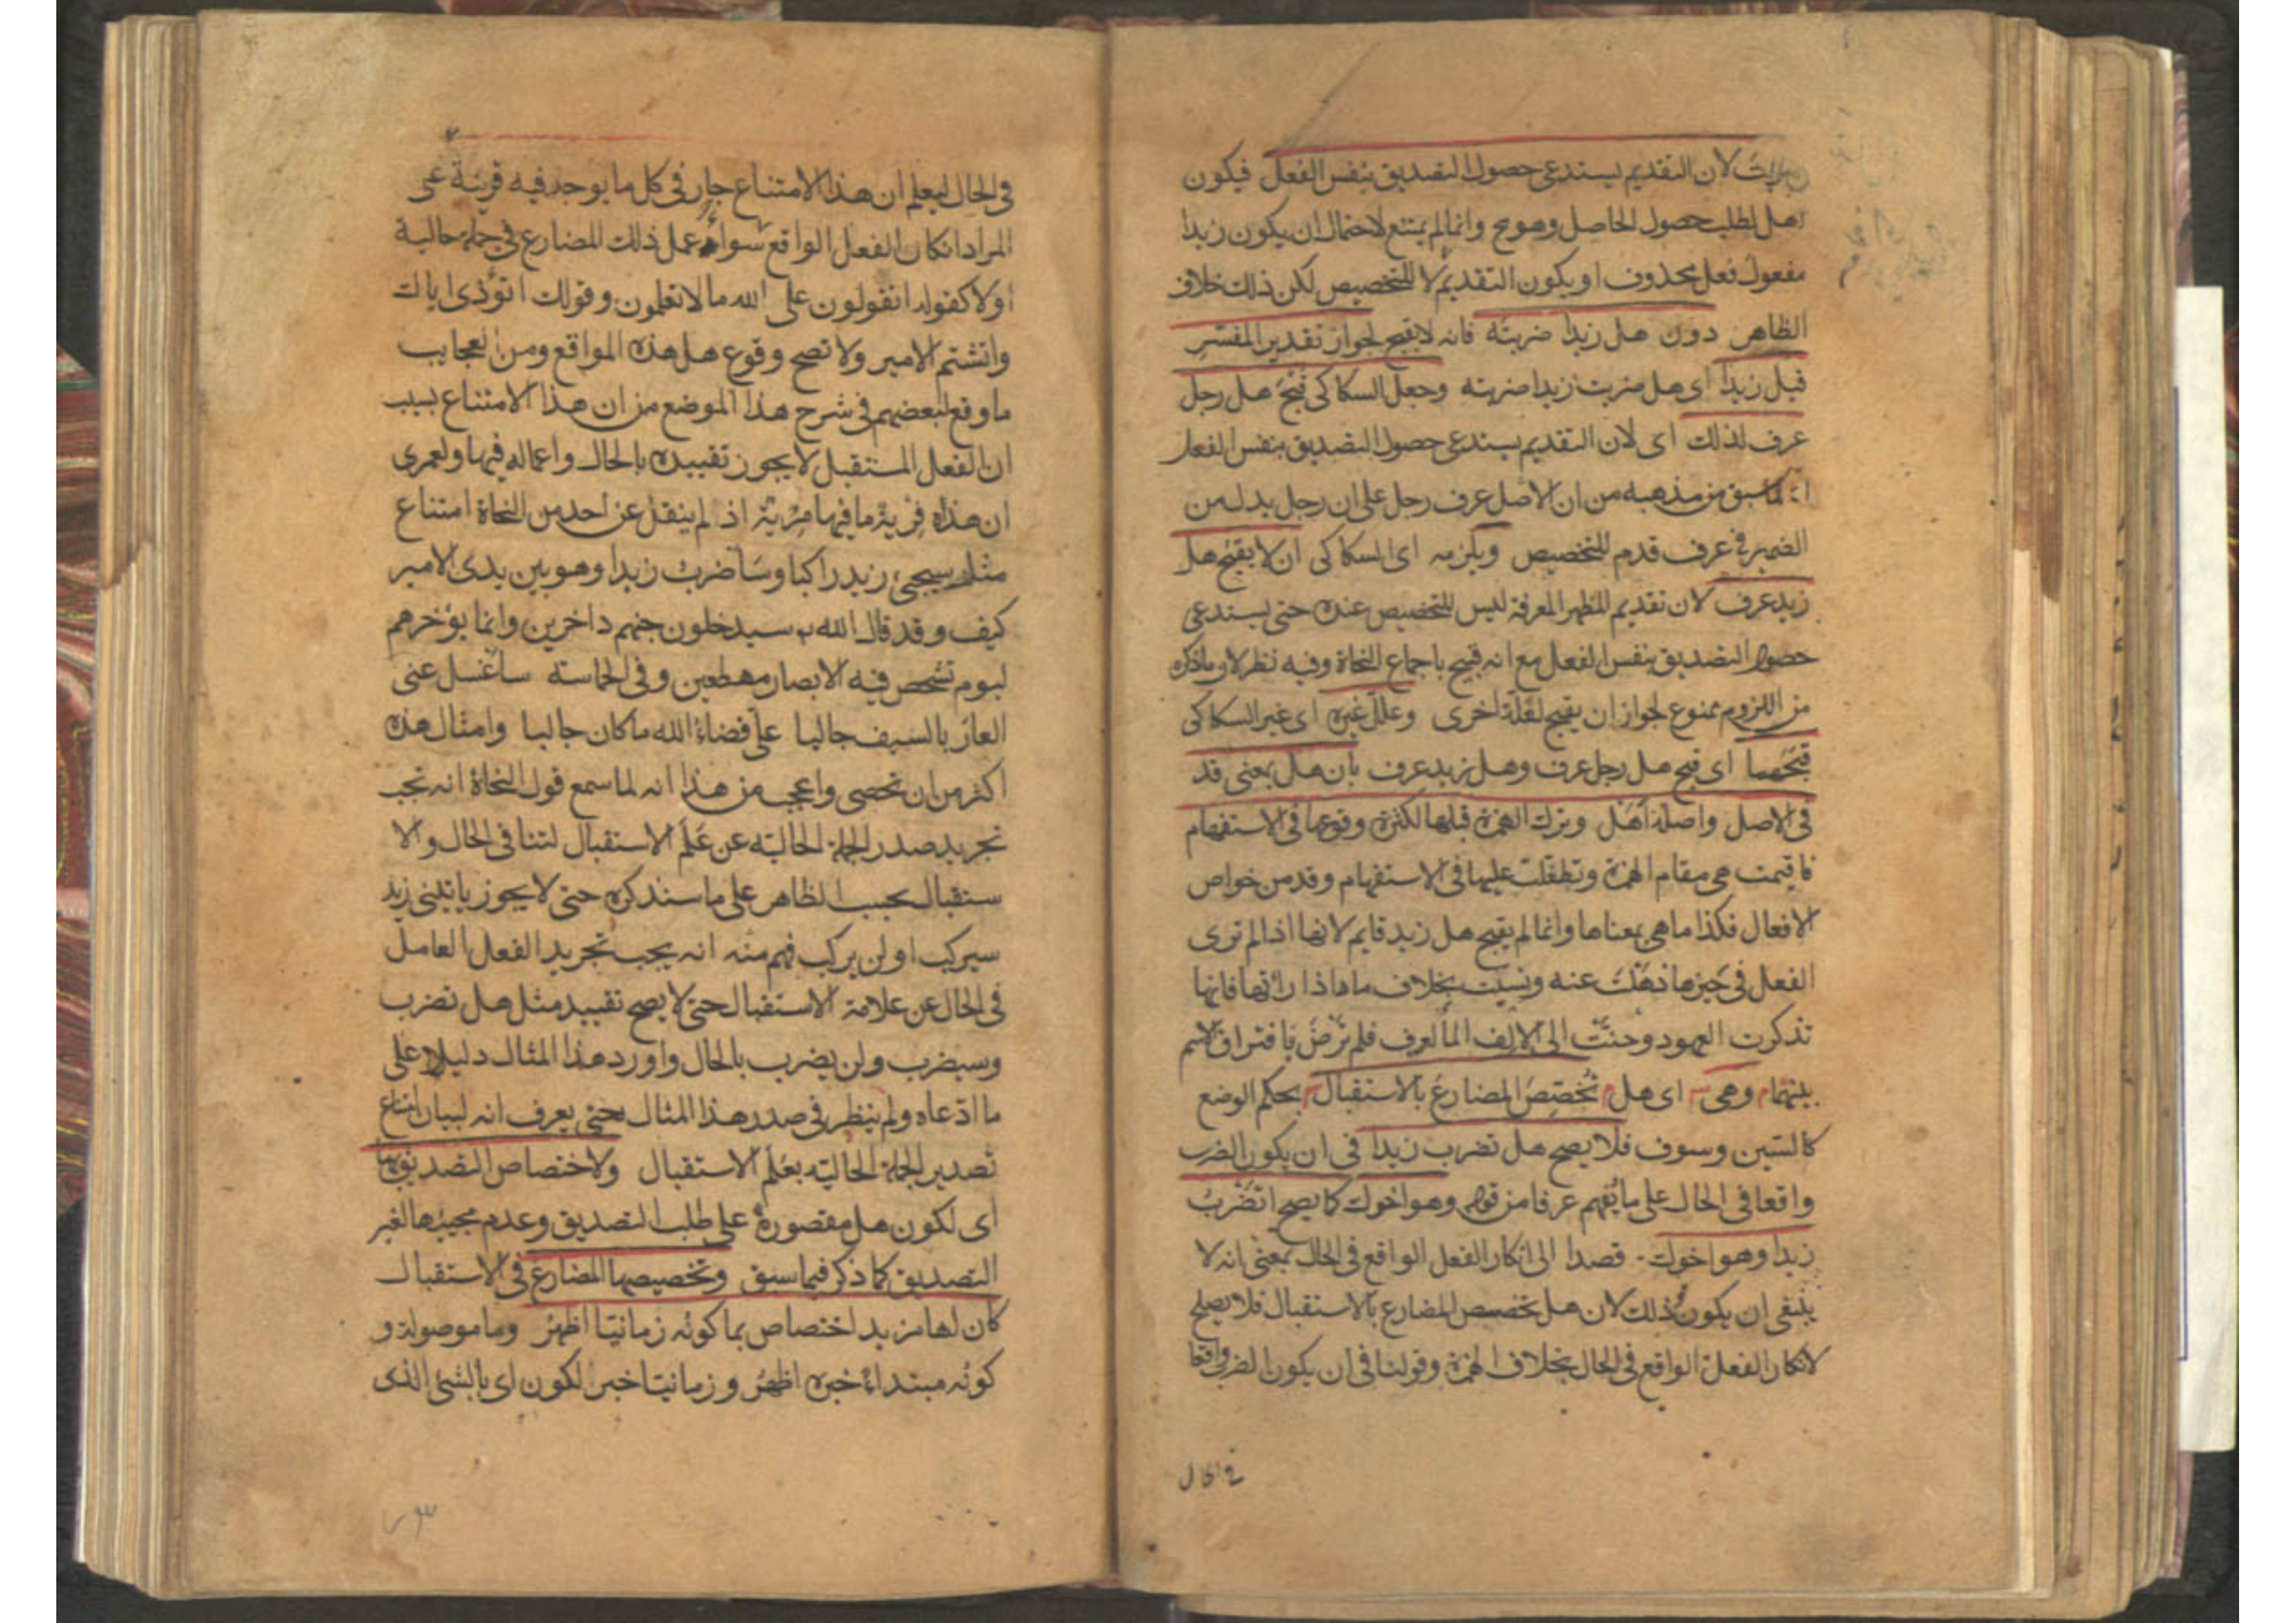 ضربت لان التقديم يستدعى حصول التصديق بنفس الفعل فيكون
هل لطلب حصول الحاصل وهو مح وانما لم يمتنع لاحتمال ان يكون زيدا
مفعول فعل محذوف او يكون التقديم لا للتخصيص لكن ذلك خلاف
الظاهر دون هل زيدا ضربته فانه لا يقبح لجواز تقدير المفسر
قبل زيدا اى هل ضربت زيدا ضربته وجعل السكاكى قبح هل رجل
عرف لذلك اى لان التقديم يستدعى حصول التصديق بنفس الفعل
لما سبق من مذهبه من ان الاصل عرف رجل على ان رجل بدل من
الضمير فى عرف قدم للتخصيص ويلزمه اى السكاكى ان لا يقبح هل
زيد عرف لان تقديم المظهر المعرفة ليس للتخصيص عنده حتى يستدعى
حصول التصديق بنفس الفعل مع انه قبيح باجماع النحاة وفيه نظر لان ما ذكره
من اللزوم ممنوع لجواز ان يقبح لعلة اخرى وعلل غيره اى غير السكاكى
قبحهما اى قبح هل رجل عرف وهل زيد عرف بان هل بمعنى قد
فى الاصل واصله أهل وترك الهمزة قبلها لكثرة وقوعها فى الاستفهام
فاقيمت هى مقام الهمزة وتطفلت عليها فى الاستفهام وقد من خواص
الافعال فكذا ما هى بمعناها وانما لم يقبح هل زيد قايم لانها اذا لم ترى
الفعل فى حيزها ذهلت عنه ونسيت بخلاف ما اذا رأتها فانها
تذكرت العهود وحنت الى الالف المألوف فلم ترض بافتراق الاسم
بينهما وهى اى هل تخصص المضارع بالاستقبال بحكم الوضع
كالسين وسوف فلا يصح هل تضرب زيدا فى ان يكون الضرب
واقعا فى الحال على ما يفهم عرفا من قوله وهو اخوك كما يصح اتضرب
زيدا وهو اخوك قصدا الى انكار الفعل الواقع فى الحال بمعنى انه لا
ينبغى ان يكون ذلك لان هل تخصص المضارع بالاستقبال فلا يصلح
لانكار الفعل الواقع فى الحال بخلاف الهمزة وقولنا فى ان يكون الضرب واقعا
فى الحال
فى الحال ليعلم ان هذا الامتناع جار فى كل ما يوجد فيه قرينة على
المراد انكار الفعل الواقع سواء عمل ذلك المضارع فى جملة حالية
اولا كقوله اتقولون على الله ما لا تعلمون وقولك اتؤذى اباك
واتشتم الامير ولا تصح وقوع هل هذه المواقع ومن العجايب
ما وقع لبعضهم فى شرح هذا الموضع من ان هذا الامتناع بسبب
ان الفعل المستقبل لا يجوز تقييده بالحال واعماله فيها ولعمرى
ان هذه فرية ما فيها مرية اذ لم ينقل عن احد من النحاة امتناع
مثل سيجىء زيد راكبا وسأضرب زيدا وهو بين يدى الامير
كيف وقد قال الله سيدخلون جهنم داخرين وانما يؤخرهم
ليوم تشخص فيه الابصار مهطعين وفى الحماسة سأغسل عنى
العار بالسيف جالبا على قضاء الله ما كان جالبا وامثال هذه
اكثر من ان تحصى واعجب من هذا انه لما سمع قول النحاة انه تجب
تجريد صدر الجملة الحالية عن علم الاستقبال لتنافى الحال والا
ستقبال بحسب الظاهر على ما سنذكره حتى لا يجوز يأتينى زيد
سيركب او لن يركب فهم منه انه يجب تجريد الفعل العامل
فى الحال عن علامة الاستقبال حتى لا يصح تقييد مثل هل تضرب
وسيضرب ولن يضرب بالحال واورد هذا المثال دليلا على
ما ادعاه ولم ينظر فى صدر هذا المثال حتى يعرف انه لبيان امتناع
تصدير الجملة الحالية بعلم الاستقبال ولاختصاص التصديق بها
اى لكون هل مقصورة على طلب التصديق وعدم مجيئها لغير
التصديق كما ذكر فيما سبق وتخصيصها المضارع فى الاستقبال
كان لها مزيد اختصاص بما كونه زمانيا اظهر وما موصولة و
كونه مبتداء خبره اظهر وزمانيا خبر لكون اى بالشئ الذى